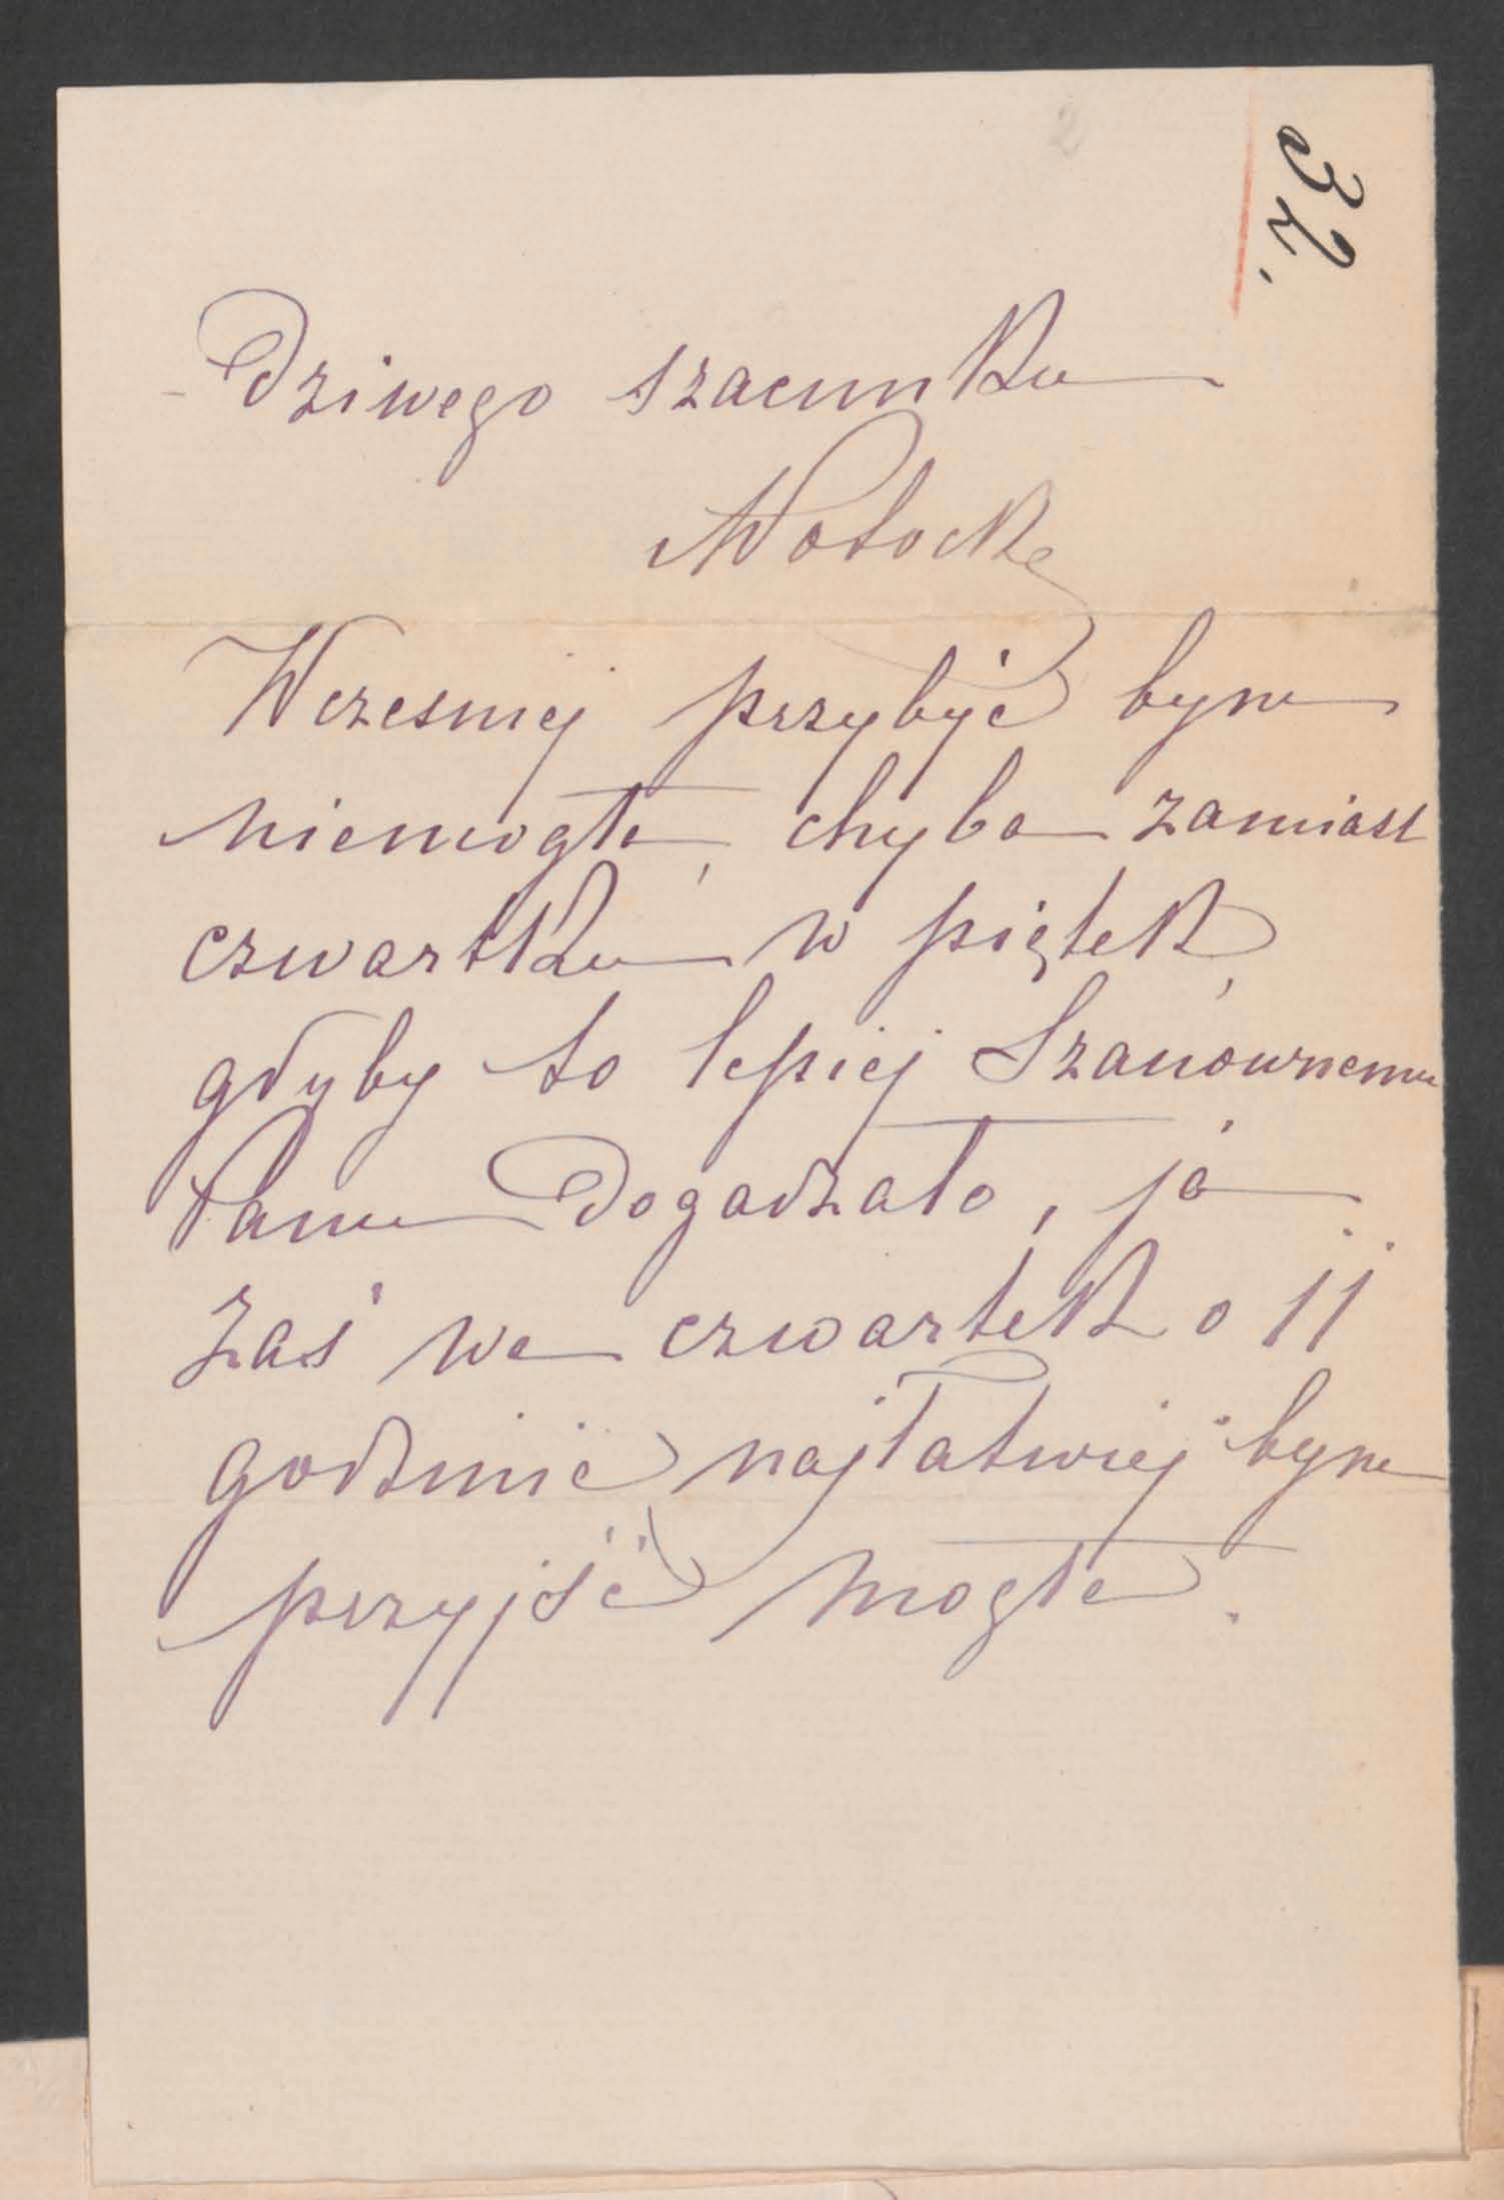 32.
2
-dziwego szacunku
Wczesniej przybyć bym
niemogła, chyba zamiast
czwartku w piątek,
gdyby to lepiej Szanownemu
Panu dogadzało, ja
zaś we czwartek o 11
godzinie najłatwiej bym
przyjść mogła.